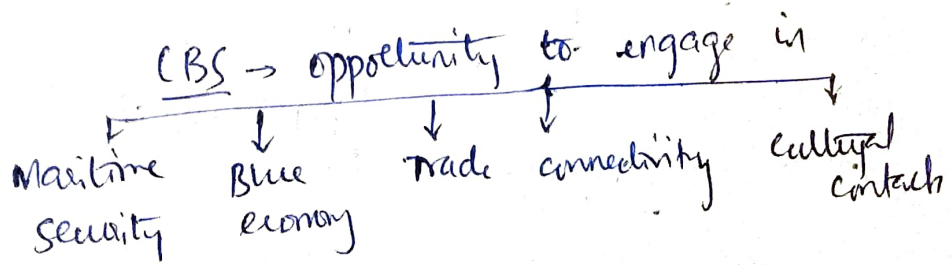 CBS → opportunity to engage in
Maritime security
Blue economy
Trade
connectivity
cultural contacts